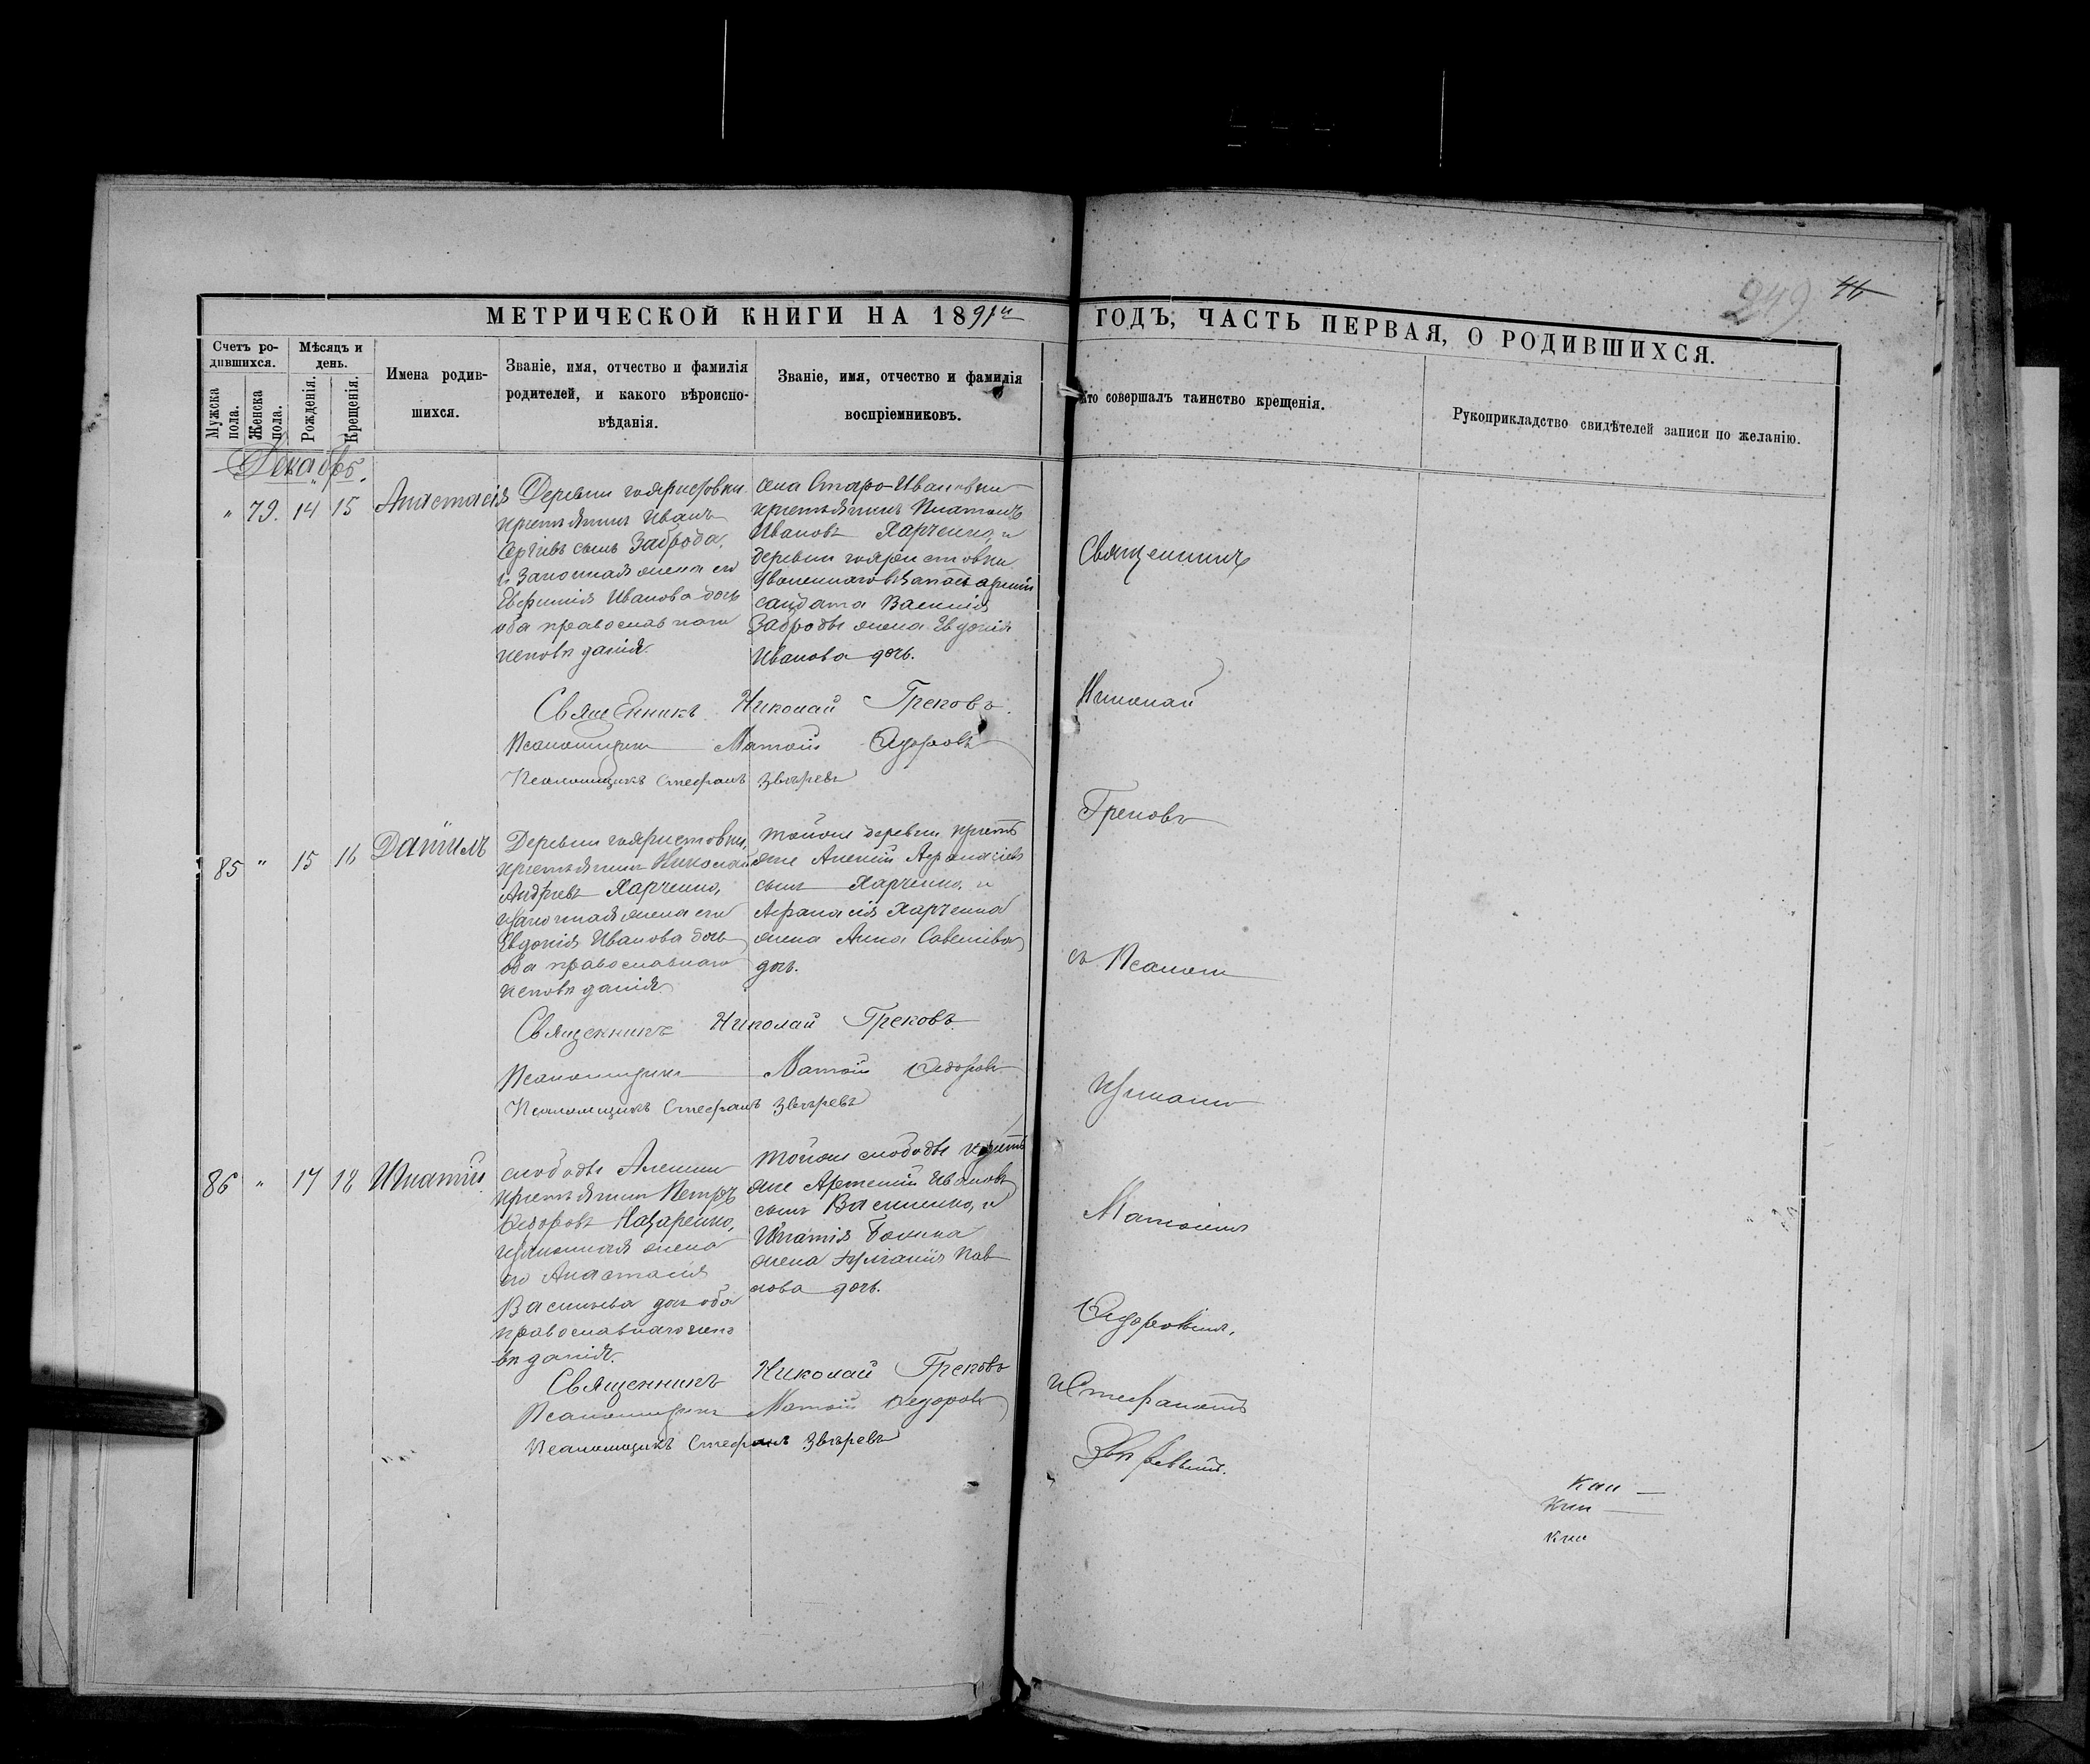 249 46
МЕТРИЧЕСКОЙ КНИГИ НА 1891й ГОДЪ, ЧАСТЬ ПЕРВАЯ, О РОДИВШИХСЯ.
Счетъ ро-
дившихся.
Мужска
пола.
Женска
пола.
Мѣсяцъ и
день.
Рожденія.
Крещенія.
Имена родив-
шихся.
Званіе, имя, отчество и фамилія
родителей, и какого вѣроиспо-
вѣданія.
Званіе, имя, отчество и фамилія
воспріемниковъ.
Кто совершалъ таинство крещенія.
Рукоприкладство свидѣтелей записи по желанію.
Декабрь.
" 79. 14 15 Анастасія
Деревни
крестьянинъ Иванъ
сынъ Заброда,
и законная жена его
Евфимія Иванова дочь
оба православнаго
исповѣданія.
села Старо-Ивановки
крестьянинъ Платонъ
Ивановъ Харченко, и
деревни
армій
солдата Василія
Заброды жена Евдокія
Иванова дочь.
Священникъ Николай Грековъ.
Псаломщикъ Матѳій Ѳедоровъ
Псаломщикъ Стефанъ Звѣревъ
85 " 15 16 Даніилъ
Деревни
крестьянинъ Николай
Андреевъ Харченко,
и законная жена его
Евдокія Иванова дочь
оба православнаго
исповѣданія.
тойже деревни крестъ
яне Алексій Афанасіевъ
сынъ Харченко, и
Афанасія Харченка
жена Анна
дочь.
Священникъ Николай Грековъ.
Псаломщикъ Матѳій Ѳедоровъ
Псаломщикъ Стефанъ Звѣревъ
86 " 17 18 Игнатій
слободы
крестьянинъ Петръ
Ѳедоровъ Назаренко,
и законная жена
его Анастасія
Васильева дочь оба
православнаго испо
вѣданія.
тойже слободы крестъ
яне Артемій Ивановъ
сынъ Василенко, и
Игнатія
жена Іуліанія Пав
лова дочь.
Священникъ Николай Грековъ
Псаломщикъ Матѳій Ѳедоровъ
Псаломщикъ Стефанъ Звѣревъ
Священникъ
Николай
Грековъ
съ Псалом
щиками
Матѳіемъ
Ѳедоровымъ,
и Стефаномъ
Звѣревымъ.